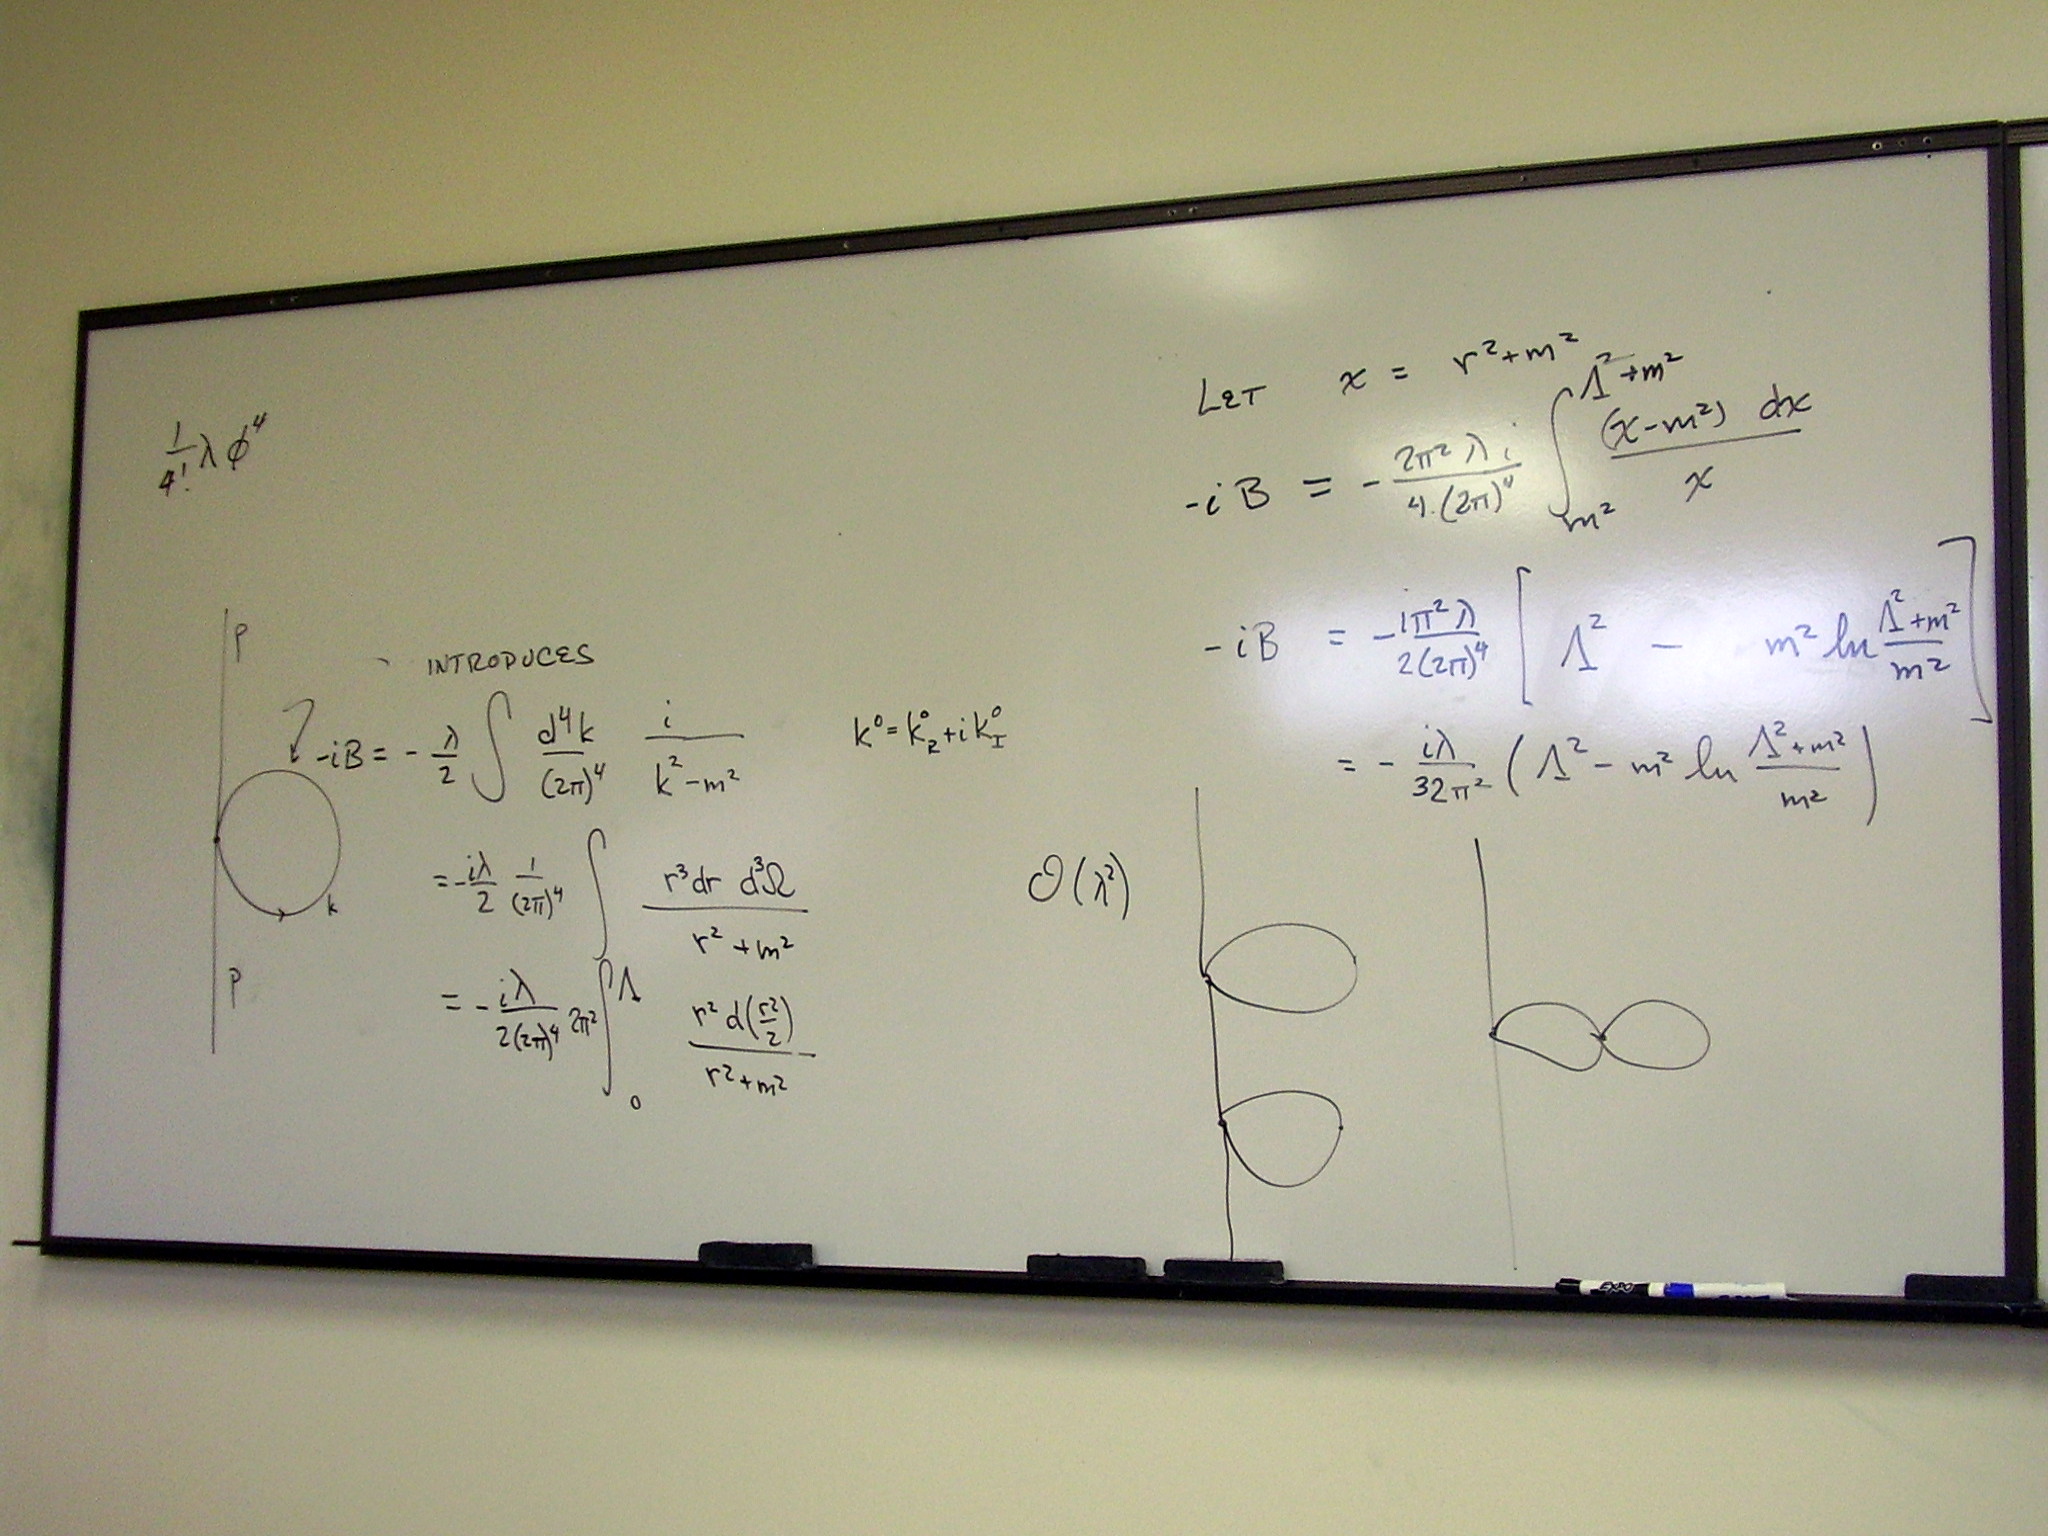 1/4! λ φ⁴
P
INTRODUCES
-iB = - λ/2 ∫ d⁴k/(2π)⁴ i/(k² - m²)
k⁰ = k⁰_R + i k⁰_I
= - iλ/2 1/(2π)⁴ ∫ r³dr d³Ω/(r² + m²)
k
P
= - iλ/(2(2π)⁴) 2π² ∫_0^Λ r² d(r²/2)/(r² + m²)
LET x = r² + m²
-iB = - 2π² λ i/(4·(2π)⁴) ∫_{m²}^{Λ²+m²} (x - m²) dx/x
-iB = - iπ² λ/(2(2π)⁴) [ Λ² - m² ln (Λ² + m²)/m² ]
= - iλ/(32π²) ( Λ² - m² ln (Λ² + m²)/m² )
O(λ²)
EXPO